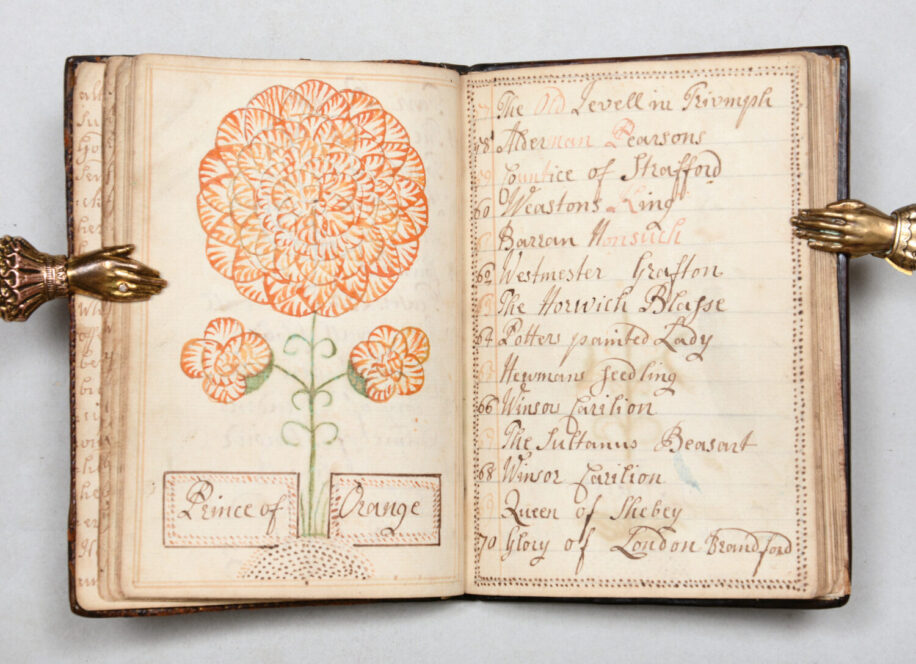 Prince of Orange
The Old Levell in Trivmph
58 Alderman Pearsons
59 Countice of Strafford
60 Weastons King
61 Barran Nonsuch
62 Westmester Grafton
63 The Norwich Blasse
64 Potters painted Lady
65 Newmans Seedling
66 Winsor Carilion
67 The Sultanus Beasart
68 Winsor Carilion
69 Queen of Shebey
70 Glory of London Brandford